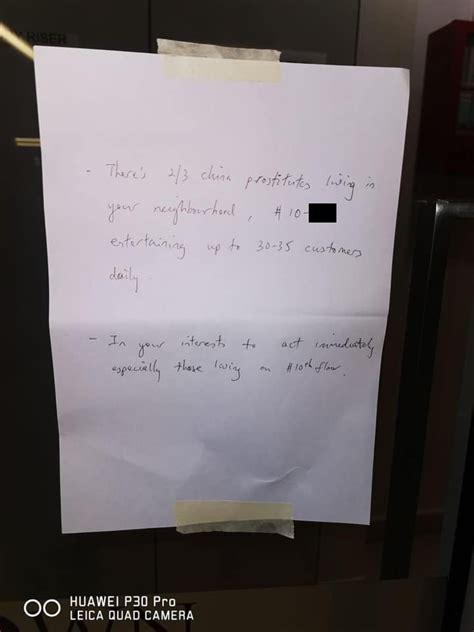 RISER
- There's 2/3 china prostitutes living in
your neighbourhood, #10-
entertaining up to 30-35 customers
daily.
- In your interests to act immediately
especially those living on #10th floor.
HUAWEI P30 Pro
LEICA QUAD CAMERA